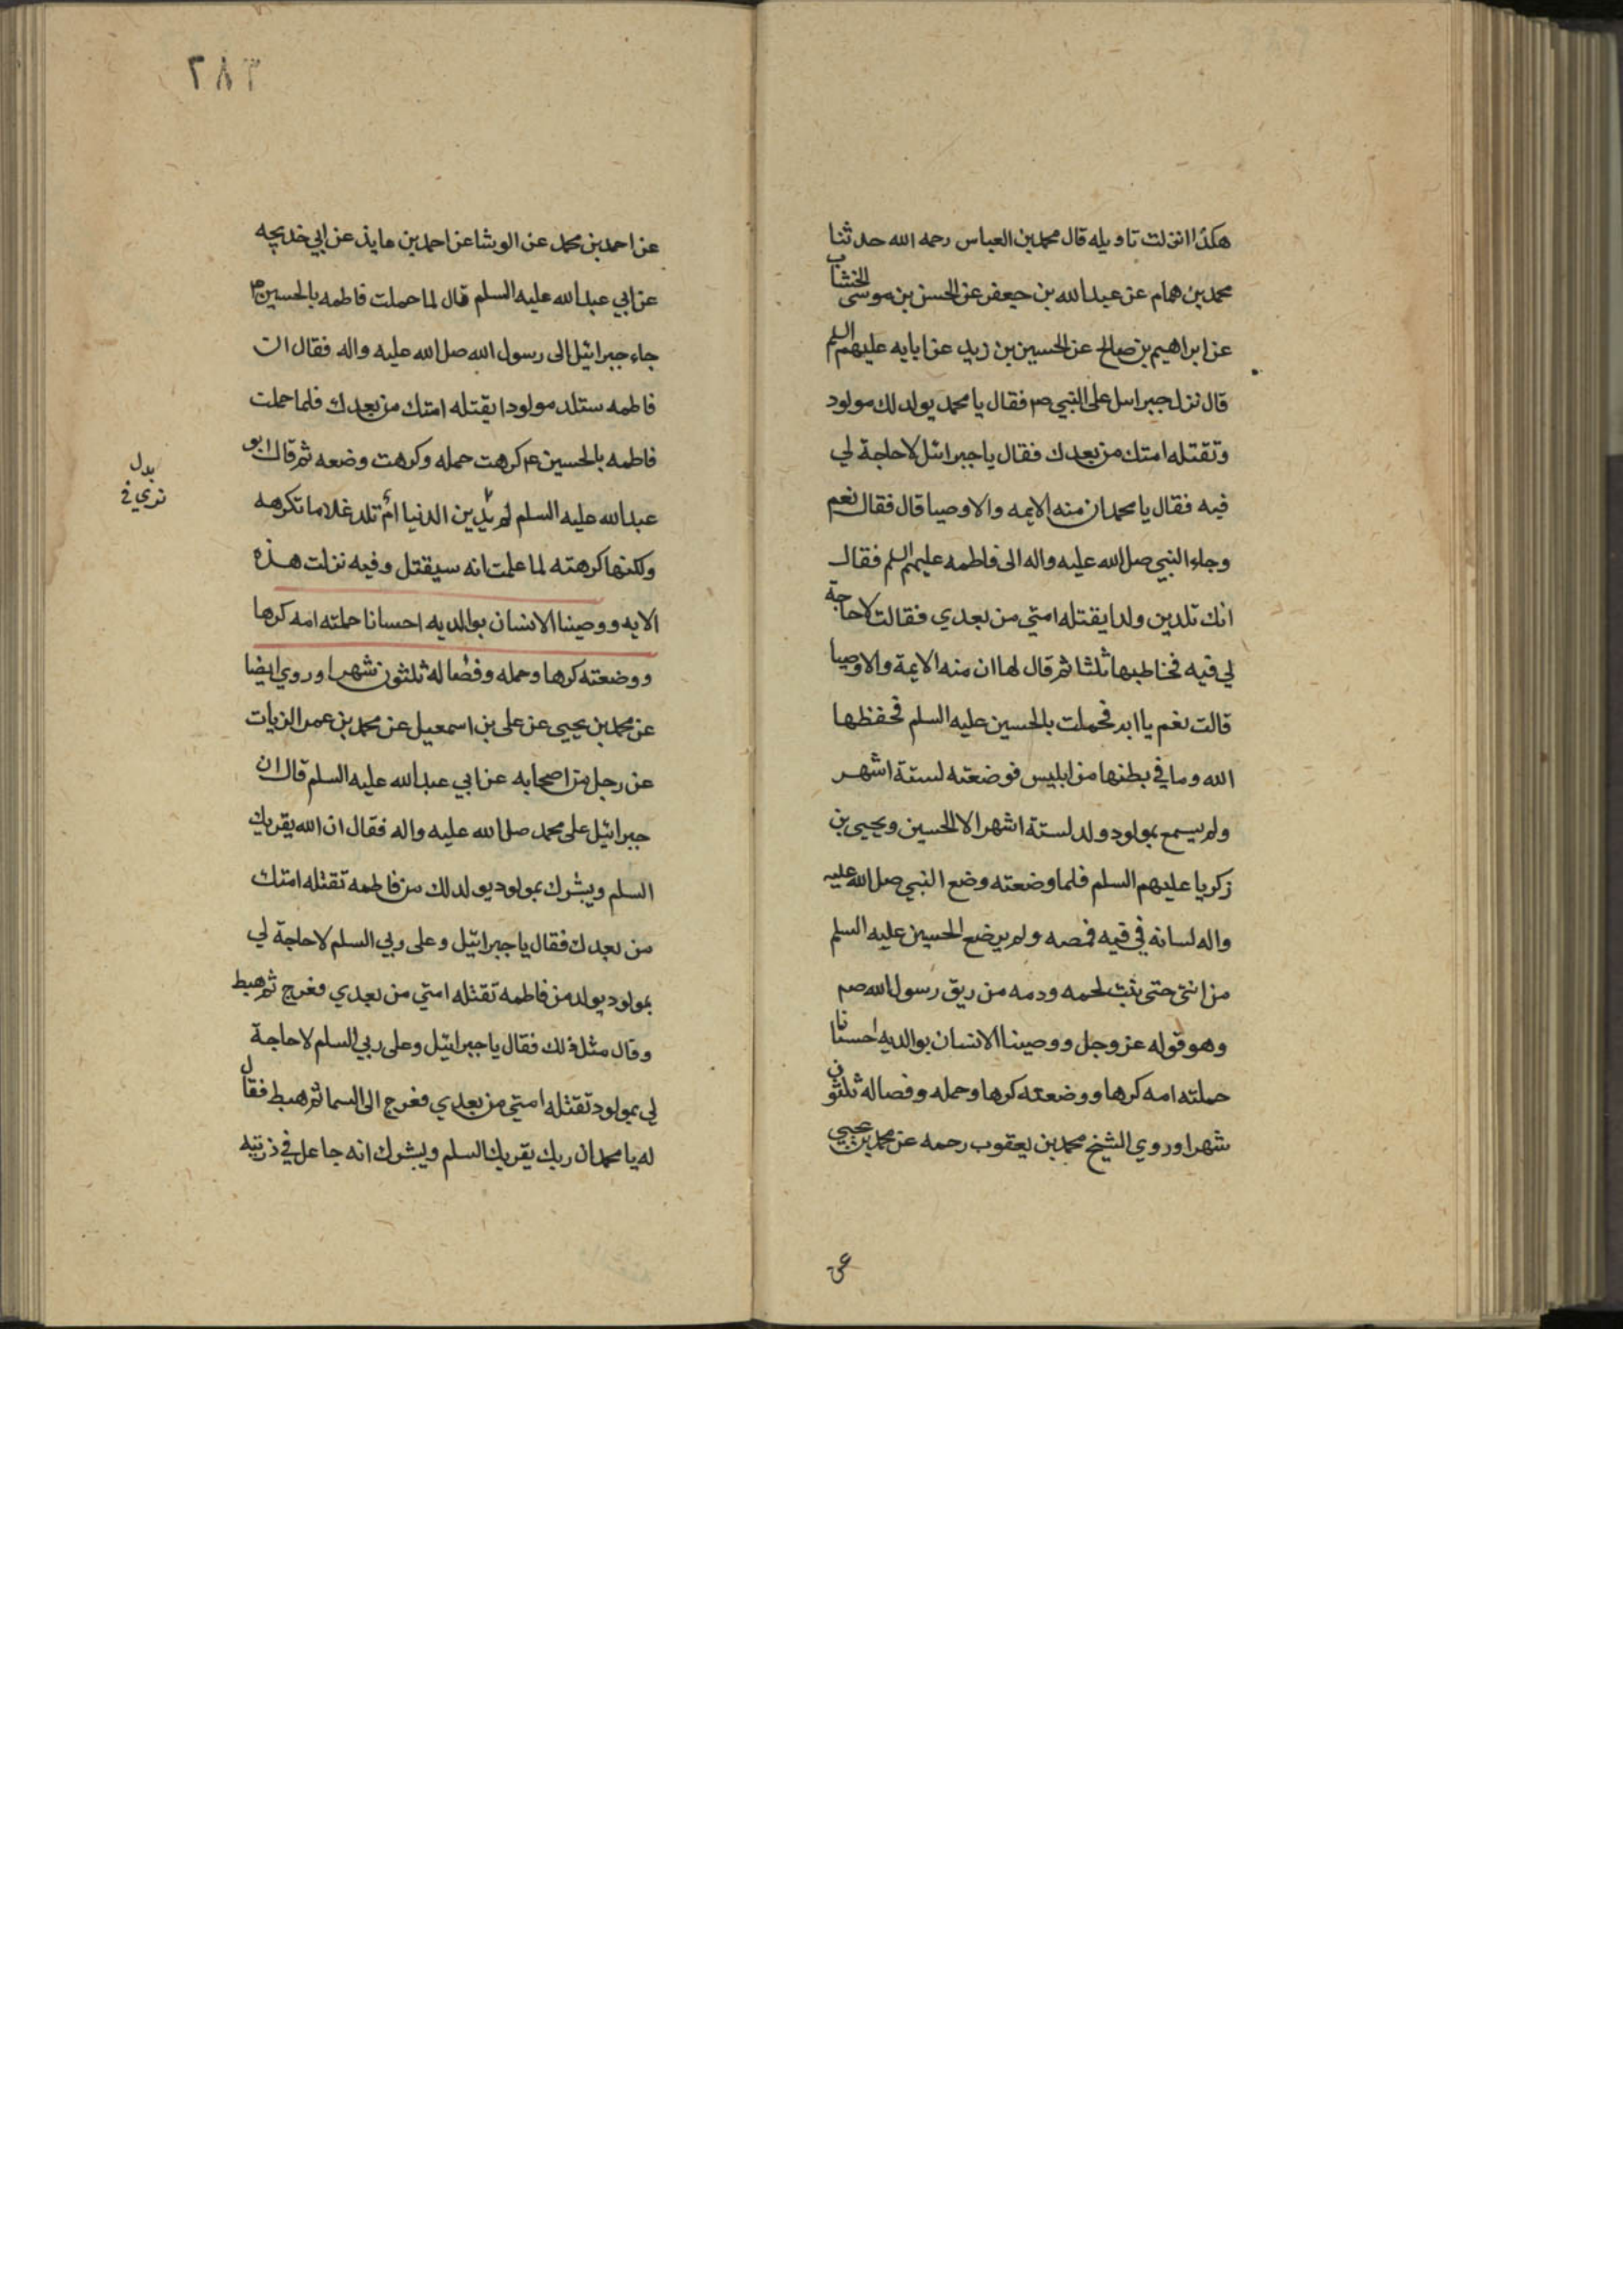 هكذا انزلت تاويله قال محمد بن العباس رحمه الله حدثنا
محمد بن همام عن عبد الله بن جعفر عن الحسن بن موسى الخشاب
عن ابراهيم بن صالح عن الحسين بن زيد عن ابايه عليهم السلم
قال نزل جبراىىل على النبي صم فقال يا محمد يولد لك مولود
وتقتله امتك من بعدك فقال يا جبرائيل لا حاجة لي
فيه فقال يا محمد ان منه الايمه والاوصيا قال فقال نعم
وجاء النبي صلى الله عليه واله الى فاطمه عليهم السلم فقال
انك تلدين ولدا يقتله امتي من بعدي فقالت لا حاجة
لي فيه فخاطبها ثلثا ثم قال لها ان منه الايمة والاوصيا
قالت نعم يا ابه فحملت بالحسين عليه السلم فحفظها
الله وما في بطنها من ابليس فوضعته لستة اشهر
ولم يسمع بمولود ولد لستة اشهر الا الحسين ويحيى بن
زكريا عليهم السلم فلما وضعته وضع النبي صلى الله عليه
واله لسانه في فيه فمصه ولم يرضع الحسين عليه السلم
من انثى حتى نبت لحمه ودمه من ريق رسول الله صم
وهو قوله عز وجل ووصينا الانسان بوالديه احسانا
حملته امه كرها ووضعته كرها وحمله وفصاله ثلثون
شهرا وروي الشيخ محمد بن يعقوب رحمه عن محمد بن يحيى
عن
٣٨٢
عن احمد بن محمد عن الوشا عن احمد بن عايذ عن ابي خديجه
عن ابي عبد الله عليه السلم قال لما حملت فاطمه بالحسين ع
جاء جبرائيل الى رسول الله صلى الله عليه واله فقال ان
فاطمه ستلد مولودا يقتله امتك من بعدك فلما حملت
فاطمه بالحسين ع كرهت حمله وكرهت وضعه ثم قال ابو
عبد الله عليه السلم لم الدنيا ام تلد غلاما تكرهه
ولكنها كرهته لما علمت انه سيقتل وفيه نزلت هذه
الايه ووصينا الانسان بوالديه احسانا حملته امه كرها
ووضعته كرها وحمله وفصاله ثلثون شهرا وروي ايضا
عن محمد بن يحيى عن على بن اسمعيل عن محمد بن عمر الزيات
عن رجل من اصحابه عن ابي عبد الله عليه السلم قال ان
جبرائيل على محمد صلى الله عليه واله فقال ان الله يقريك
السلم ويبشرك بمولود يولد لك من فاطمه تقتله امتك
من بعدك فقال يا جبرائيل وعلى ربي السلم لا حاجة لي
بمولود يولد من فاطمه تقتله امتي من بعدي فعرج ثم هبط
وقال مثل ذلك فقال يا جبرائيل وعلى ربي السلم لا حاجة
لي بمولود تقتله امتي من بعدي فعرج الى السما ثم هبط فقال
له يا محمد ان ربك يقريك السلم ويبشرك انه جاعل في ذريته
بدل
تري في